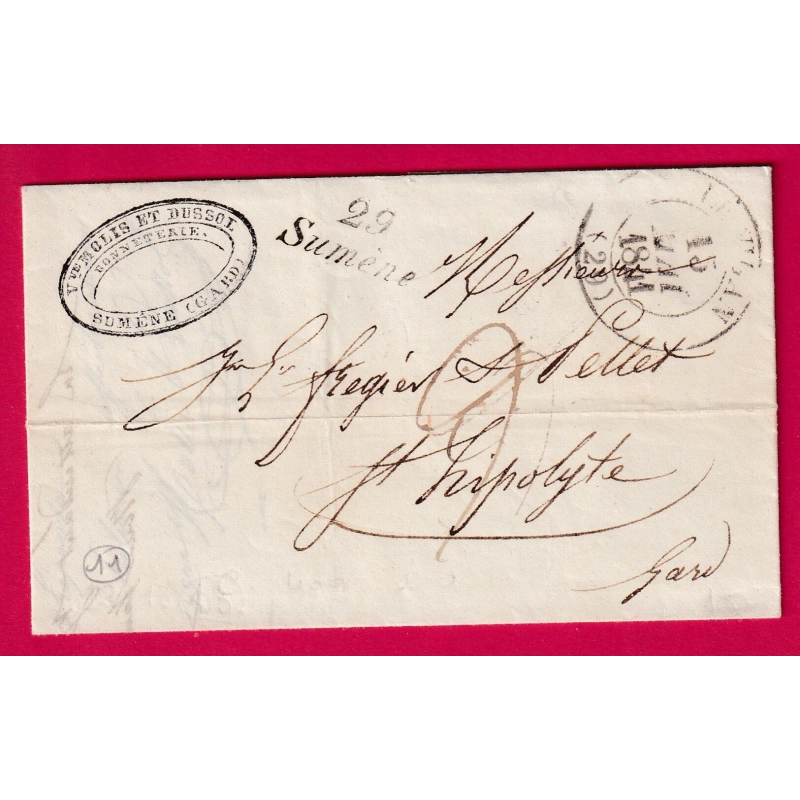 Vve MOLIS ET DUSSOL
BONNETERIE.
SUMÈNE (GARD)
29
Sumène
LE VIGAN
15
(29)
Messieurs
fregier & Pellet
St hipolyte
Gard
11